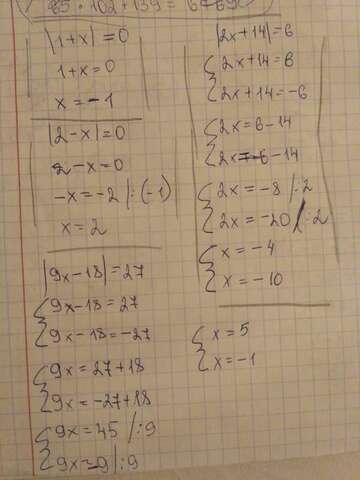 85 · 102 + 139 =
|1+x| = 0
1+x = 0
x = -1
|2-x| = 0
2-x = 0
-x = -2 |:(-1)
x = 2
|9x-18| = 27
{9x-18 = 27
{9x-18 = -27
{9x = 27+18
{9x = -27+18
{9x = 45 /:9
{9x = -9 |:9
|2x+14| = 6
{2x+14 = 6
{2x+14 = -6
{2x = 6-14
{2x = -6-14
{2x = -8 /:2
{2x = -20 /:2
{x = -4
{x = -10
{x = 5
{x = -1